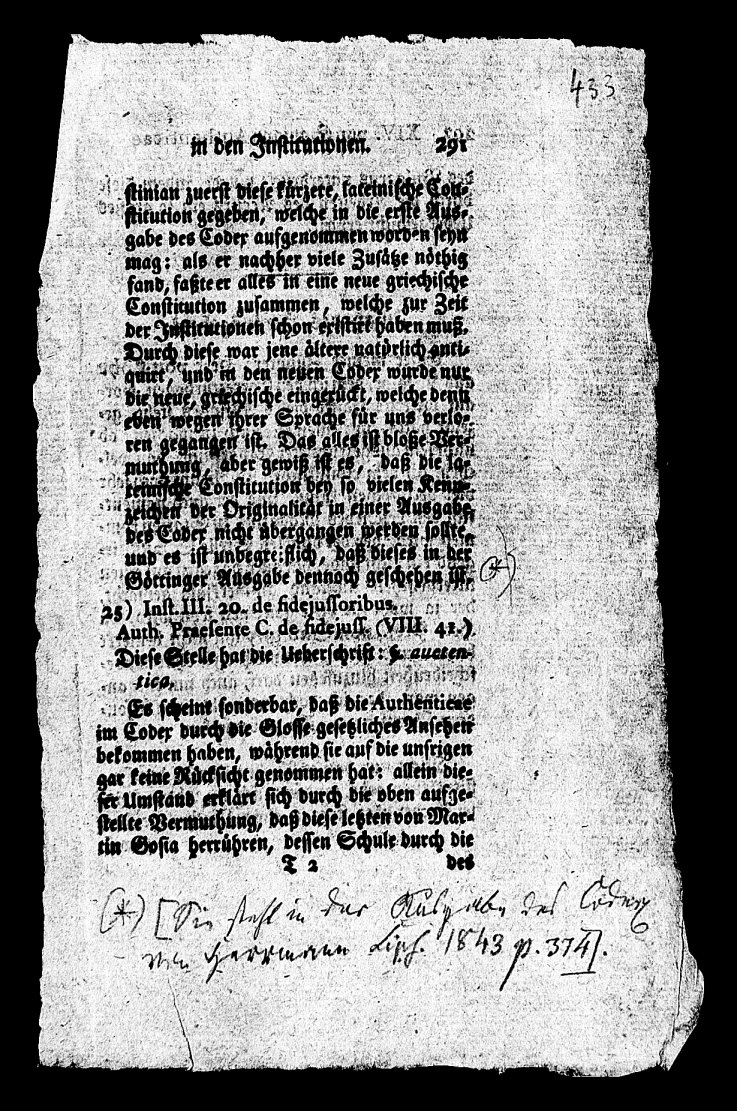 433
in den Institutionen. 291
stinian zuerst diese kürzere, lateinische Con-
stitution gegeben, welche in die erste Aus-
gabe des Codex aufgenommen worden seyn
mag: als er nachher viele Zusätze nöthig
fand, faßte er alles in eine neue griechische
Constitution zusammen, welche zur Zeit
der Institutionen schon existirt haben muß.
Durch diese war jene ältere natürlich anti-
quirt, und in den neuen Codex wurde nur
die neue, griechische eingerückt, welche denn
eben wegen ihrer Sprache für uns verlo-
ren gegangen ist. Das alles ist bloße Ver-
muthung, aber gewiß ist es, daß die la-
teinische Constitution bey so vielen Kenn-
zeichen der Originalität in einer Ausgabe
des Codex nicht übergangen werden sollte,
und es ist unbegreiflich, daß dieses in der
Göttinger Ausgabe dennoch geschehen ist. (*)
25) Inst. III. 20. de fidejussoribus.
Auth. Praesente C. de fidejuss. (VIII. 41.)
Diese Stelle hat die Ueberschrift: j. aucten-
tica.
Es scheint sonderbar, daß die Authenticae
im Codex durch die Glosse gesetzliches Ansehen
bekommen haben, während sie auf die unsrigen
gar keine Rücksicht genommen hat: allein die-
ser Umstand erklärt sich durch die oben aufge-
stellte Vermuthung, daß diese letzten von Mar-
tin Gosia herrühren, dessen Schule durch die
T 2 des
(*) [Sie steht in der Ausgabe des Codex
von Herrmann Lips. 1843 p. 374].